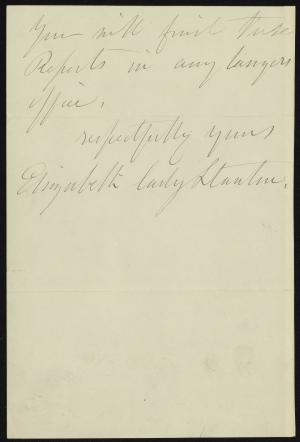 You will find these
Reports in any lawyers
office.
respectfully yours
Elizabeth Cady Stanton.